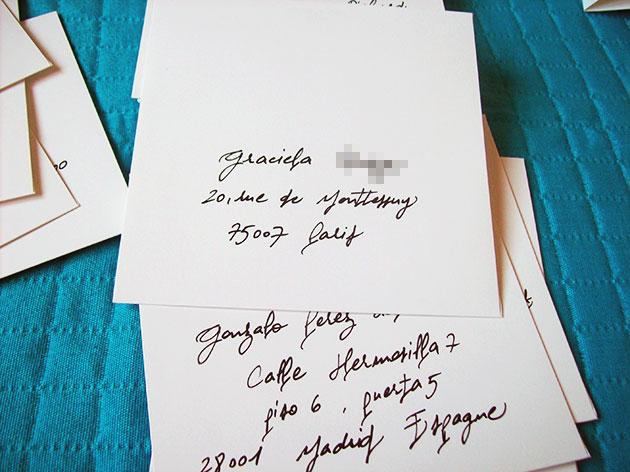 Graciela
20, rue de Monttessuy
75007 Paris
Gonzalo Perez
Calle Hermosilla 7
piso 6, puerta 5
28001 Madrid Espagne